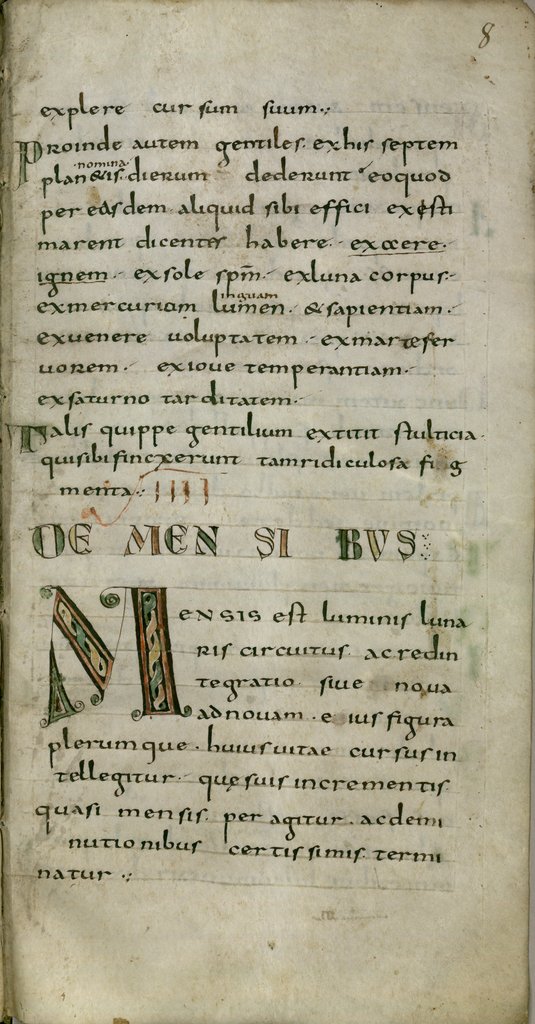 8
explere cursum suum
Proinde autem gentiles ex his septem
nomina
plan&is dierum dederunt eoquod
per easdem aliquid sibi effici existi
marent dicentes habere exaere
ignem ex sole spm̅ ex luna corpus
inguam
ex mercurium lumen & sapientiam
ex uenere uoluptatem ex marte fer
uorem ex ioue temperantiam
ex saturno tarditatem
Talis quippe gentilium extitit stulticia
qui sibi finxerunt tam ridiculosa fig
menta IIII
DE MENSIBVS
MENSIS est luminis luna
ris circuitus ac redin
tegratio siue noua
ad nouam eius figura
plerumque huius uitae cursus in
tellegitur quę suis incrementis
quasi mensis peragitur ac demi
nutionibus certissimis termi
natur